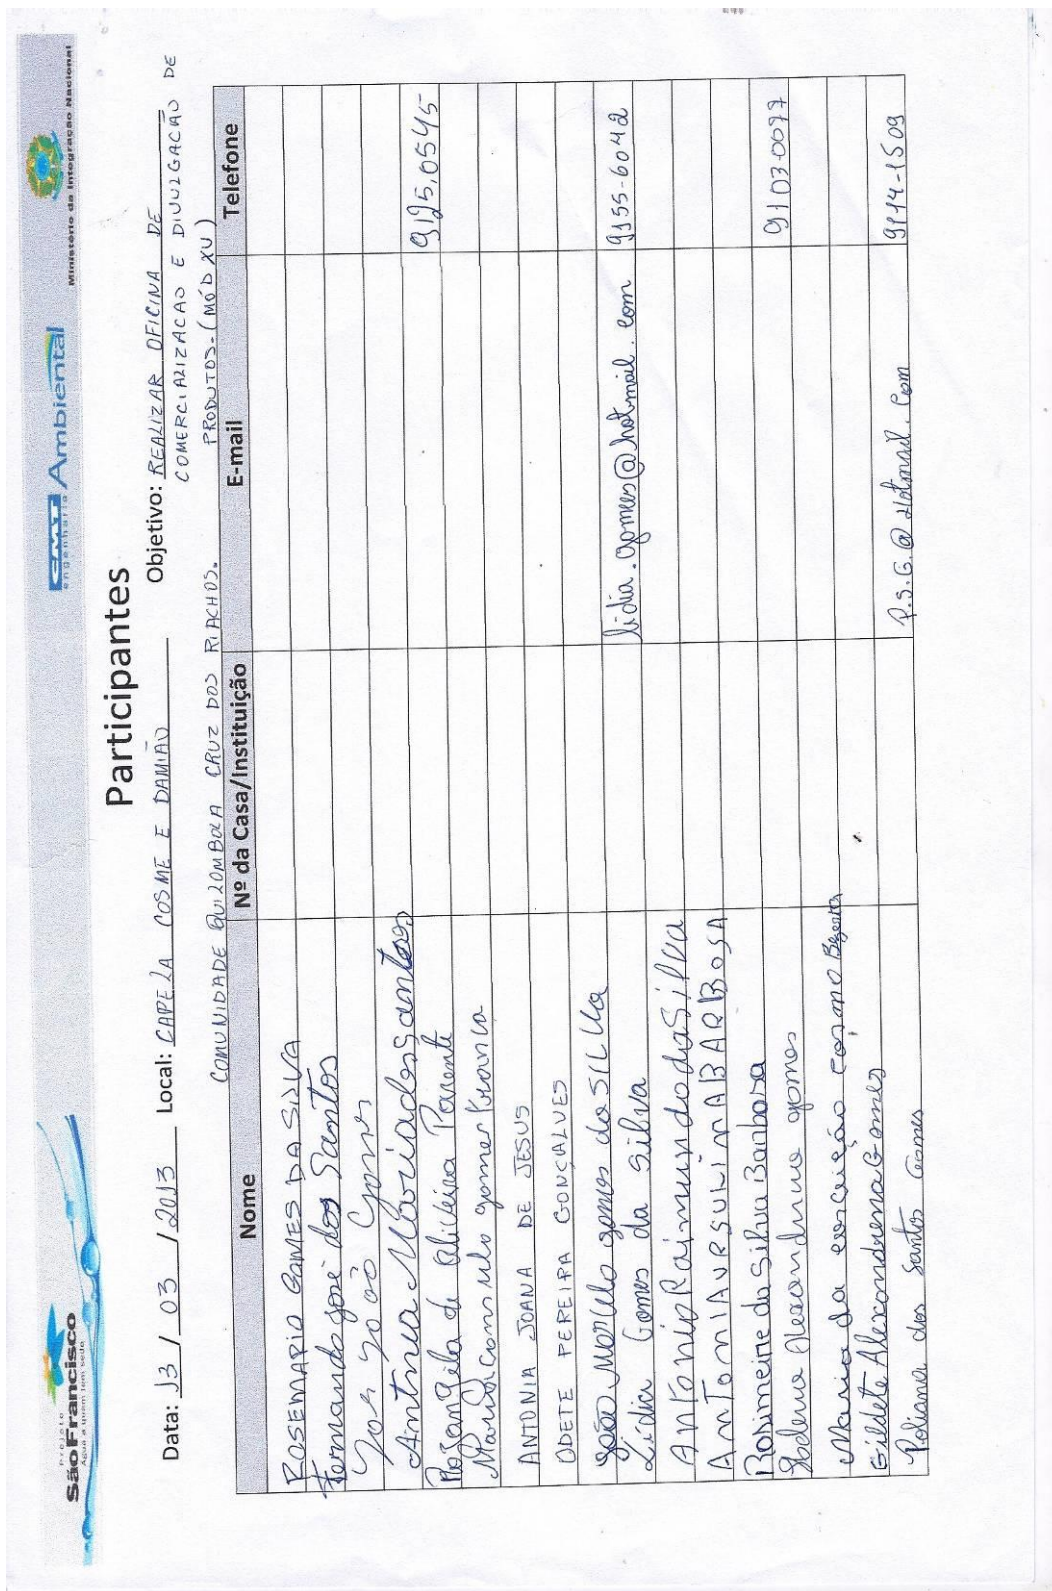 Projeto
São Francisco
Água a quem tem sede
CMT Ambiental
engenharia
Ministério da Integração Nacional
Participantes
Data: 13 / 03 / 2013 Local: CAPELA COSME E DAMIÃO Objetivo: REALIZAR OFICINA DE
COMERCIALIZACAO E DIVULGACÃO DE
COMUNIDADE QUILOMBOLA CRUZ DOS RIACHOS. PRODUTOS-(MÓD XV)
Nome Nº da Casa/Instituição E-mail Telefone
ROSEMARIO GOMES DA SILVA
Fernando José dos Santos
João Gomes
Antonia Maria dos santos 9125.0545
Rosangela de oliveira Parente
Maria Consuelo gomes
ANTONIA JOANA DE JESUS
ODETE PEREIRA GONÇALVES
João Marcelo gomes da SILVa
Lídia Gomes da Silva lidia.gomes@hotmail.com 9155-6042
ANTONIO Raimundo da Silva
AnTONIA URSULINA BARBOSA
Rosimeire da Silva Barbosa 9103-0077
Alexandrina gomes
Maria da conceição cosmo Bezerra
Gildete Alexandrina Gomes
Poliana dos Santos Gomes P.S.G.@Hotmail.Com 9114-1509